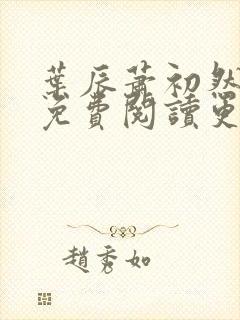 葉辰蕭初然
免費閱讀更
趙秀如